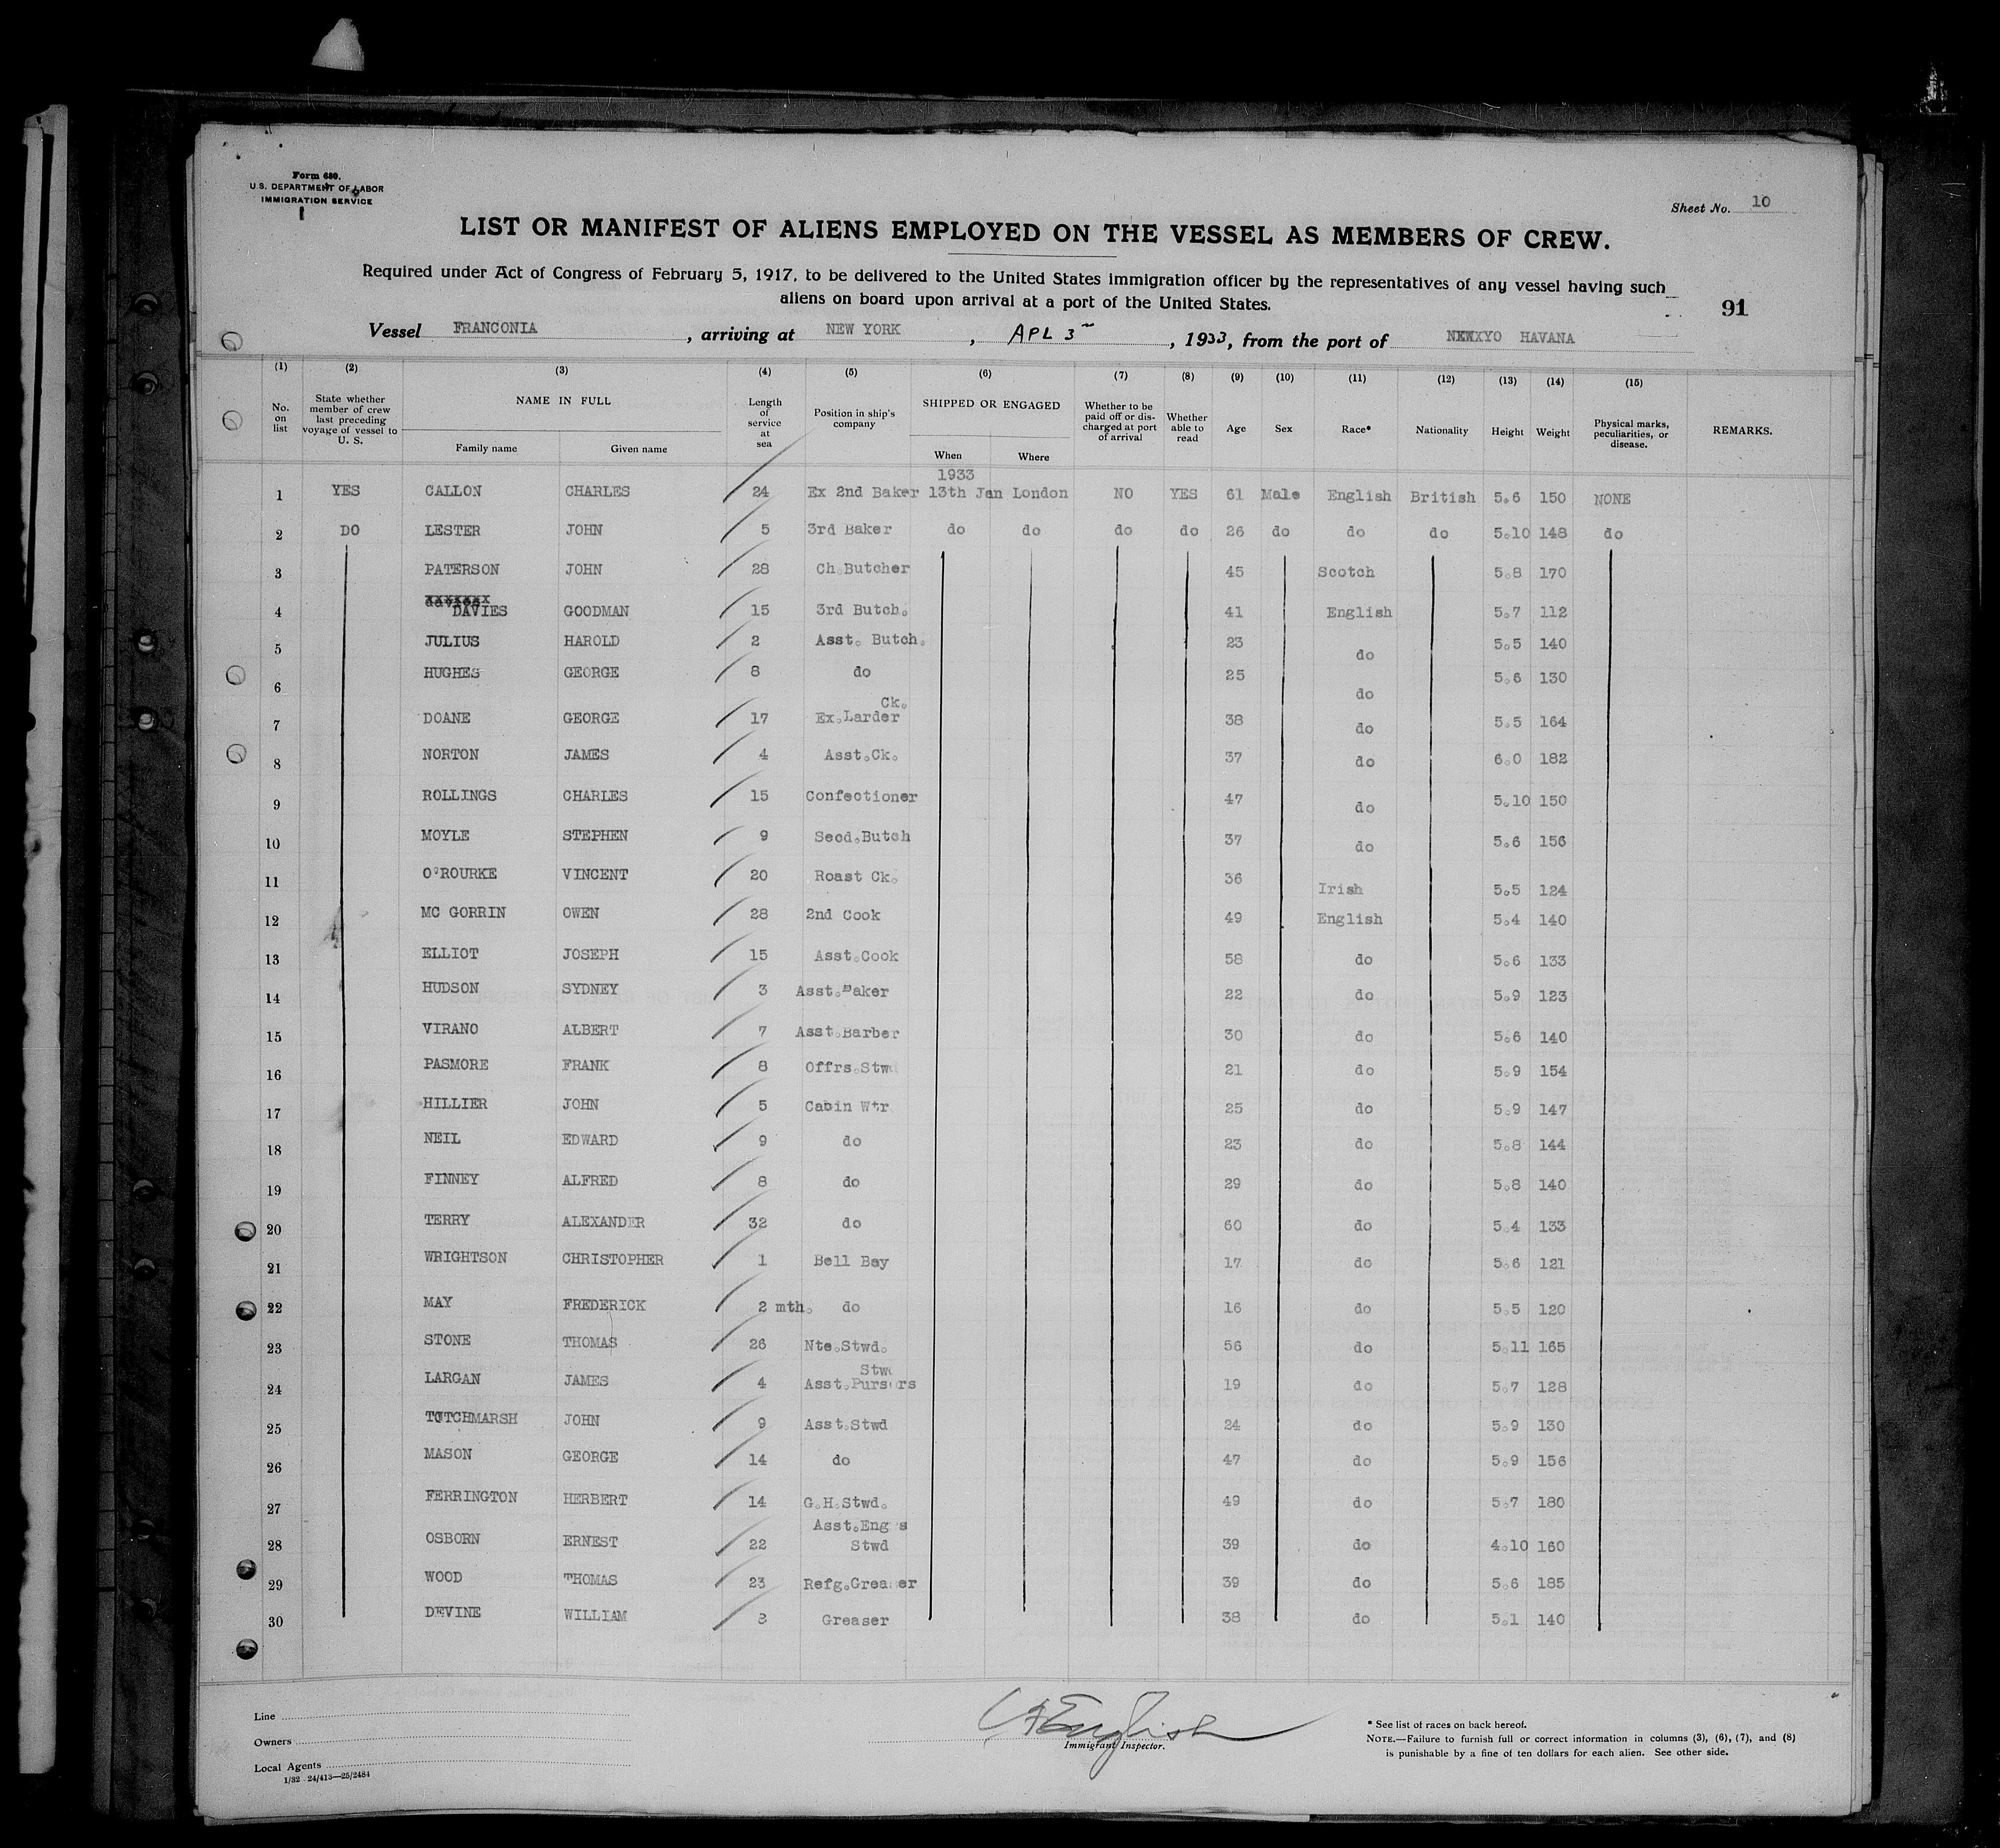 Form 680.
U. S. DEPARTMENT OF LABOR
IMMIGRATION SERVICE
Sheet No. 10
LIST OR MANIFEST OF ALIENS EMPLOYED ON THE VESSEL AS MEMBERS OF CREW.
Required under Act of Congress of February 5, 1917, to be delivered to the United States immigration officer by the representatives of any vessel having such
aliens on board upon arrival at a port of the United States.
91
Vessel FRANCONIA, arriving at NEW YORK, APL 3, 1933, from the port of HAVANA
(1) (2) (3) (4) (5) (6) (7) (8) (9) (10) (11) (12) (13) (14) (15)
No. on list
State whether member of crew last preceding voyage of vessel to U. S.
NAME IN FULL
Family name Given name
Length of service at sea
Position in ship's company
SHIPPED OR ENGAGED
When Where
Whether to be paid off or discharged at port of arrival
Whether able to read
Age Sex Race* Nationality Height Weight
Physical marks, peculiarities, or disease.
REMARKS.
1933
1 YES CALLON CHARLES 24 Ex 2nd Baker 13th Jan London NO YES 61 Male English British 5.6 150 NONE
2 DO LESTER JOHN 5 3rd Baker do do do do 26 do do do 5.10 148 do
3 PATERSON JOHN 28 Ch.Butcher 45 Scotch 5.8 170
4 DAVIES GOODMAN 15 3rd Butch. 41 English 5.7 112
5 JULIUS HAROLD 2 Asst. Butch. 23 do 5.5 140
6 HUGHES GEORGE 8 do 25 do 5.6 130
7 DOANE GEORGE 17 Ex.Larder Ck. 38 do 5.5 164
8 NORTON JAMES 4 Asst.Ck. 37 do 6.0 182
9 ROLLINGS CHARLES 15 Confectioner 47 do 5.10 150
10 MOYLE STEPHEN 9 Secd.Butch 37 do 5.6 156
11 O'ROURKE VINCENT 20 Roast Ck. 36 Irish 5.5 124
12 MC GORRIN OWEN 28 2nd Cook 49 English 5.4 140
13 ELLIOT JOSEPH 15 Asst.Cook 58 do 5.6 133
14 HUDSON SYDNEY 3 Asst.Baker 22 do 5.9 123
15 VIRANO ALBERT 7 Asst.Barber 30 do 5.6 140
16 PASMORE FRANK 8 Offrs.Stwd 21 do 5.9 154
17 HILLIER JOHN 5 Cabin Wtr 25 do 5.9 147
18 NEIL EDWARD 9 do 23 do 5.8 144
19 FINNEY ALFRED 8 do 29 do 5.8 140
20 TERRY ALEXANDER 32 do 60 do 5.4 133
21 WRIGHTSON CHRISTOPHER 1 Bell Boy 17 do 5.6 121
22 MAY FREDERICK 2 mth. do 16 do 5.5 120
23 STONE THOMAS 26 Nte.Stwd. 56 do 5.11 165
24 LARGAN JAMES 4 Asst.Pursers Stwd 19 do 5.7 128
25 TOTCHMARSH JOHN 9 Asst.Stwd 24 do 5.9 130
26 MASON GEORGE 14 do 47 do 5.9 156
27 FERRINGTON HERBERT 14 G.H.Stwd. 49 do 5.7 180
28 OSBORN ERNEST 22 Asst.Engrs Stwd 39 do 4.10 160
29 WOOD THOMAS 23 Refg.Greaser 39 do 5.6 185
30 DEVINE WILLIAM 8 Greaser 38 do 5.1 140
Line
Owners
Local Agents
1/32 24/413—25/2484
English
Immigrant Inspector.
* See list of races on back hereof.
NOTE.—Failure to furnish full or correct information in columns (3), (6), (7), and (8)
is punishable by a fine of ten dollars for each alien. See other side.